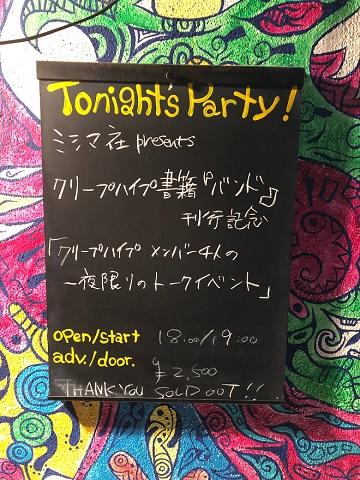 Tonight's Party!
ミシマ社 presents
クリープハイプ書籍『バンド』
刊行記念
「クリープハイプ メンバー4人の
一夜限りのトークイベント」
open/start 18:00/19:00
adv./door. ¥2,500
THANK YOU SOLD OUT!!